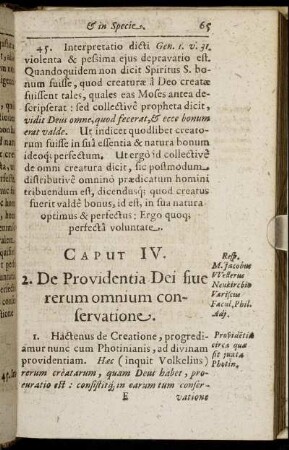 & in Specie. 65
45. Interpretatio dicti Gen. 1. v. 31.
violenta & pessima ejus depravatio est.
Quandoquidem non dicit Spiritus S. bonum
fuisse, quod creaturæ â Deo creatæ
fuissent tales, quales eas Moses antea descripserat:
sed collectivè propheta dicit,
vidit Deus omne, quod fecerat, & ecce bonum
erat valde. Ut indicet quodlibet creatorum
fuisse in suâ essentiâ & natura bonum
ideoq; perfectum. Ut ergò id collectivè
de omni creatura dicit, sic postmodum
distributivè omninò prædicatum homini
tribuendum est, dicendusq; quod creatus
fuerit valdè bonus, id est, in sua natura
optimus & perfectus: Ergo quoq;
perfectâ voluntate.
CAPUT IV.
2. De Providentia Dei sive
rerum omnium conservatione.
Resp.
M. Jacobus
Wellerus
Neukirchio
Variscus
Facul. Phil.
Adj.
1. Hactenus de Creatione, progrediamur
nunc cum Photinianis, ad divinam
providentiam. Hæc (inquit Volkelius)
rerum creatarum, quam Deus habet, procuratio
est: consistitq; in earum tum conser-
Providētia
circa quæ
sit juxta
Photin.
E vatione